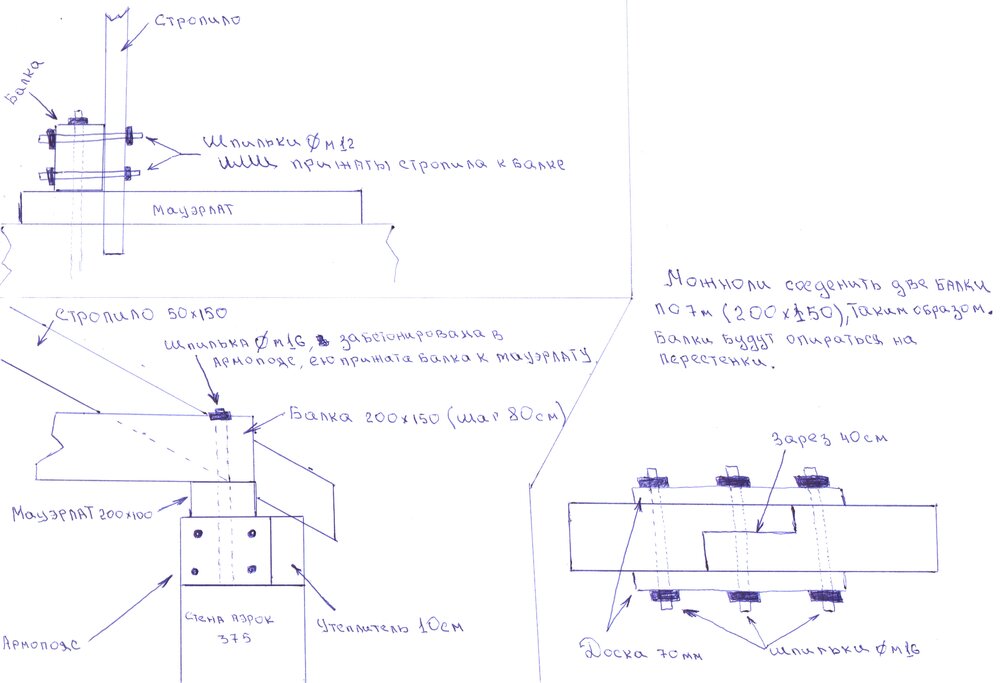 Стропило
Балка
Шпильки Ф м12
прижаты стропила к балке
Мауэрлат
Стропило 50х150
Шпилька Ф м16, забетонирована в
Армопояс, ею прижата балка к мауэрлату.
Балка 200х150 (шаг 80см)
Мауэрлат 200х100
Стена аэрок
375
Утеплитель 10см
Армопояс
Можноли соеденить две балки
по 7м (200х150), таким образом.
Балки будут опираться на
перестенки.
Зарез 40см
Доска 70мм
шпильки Ф м16